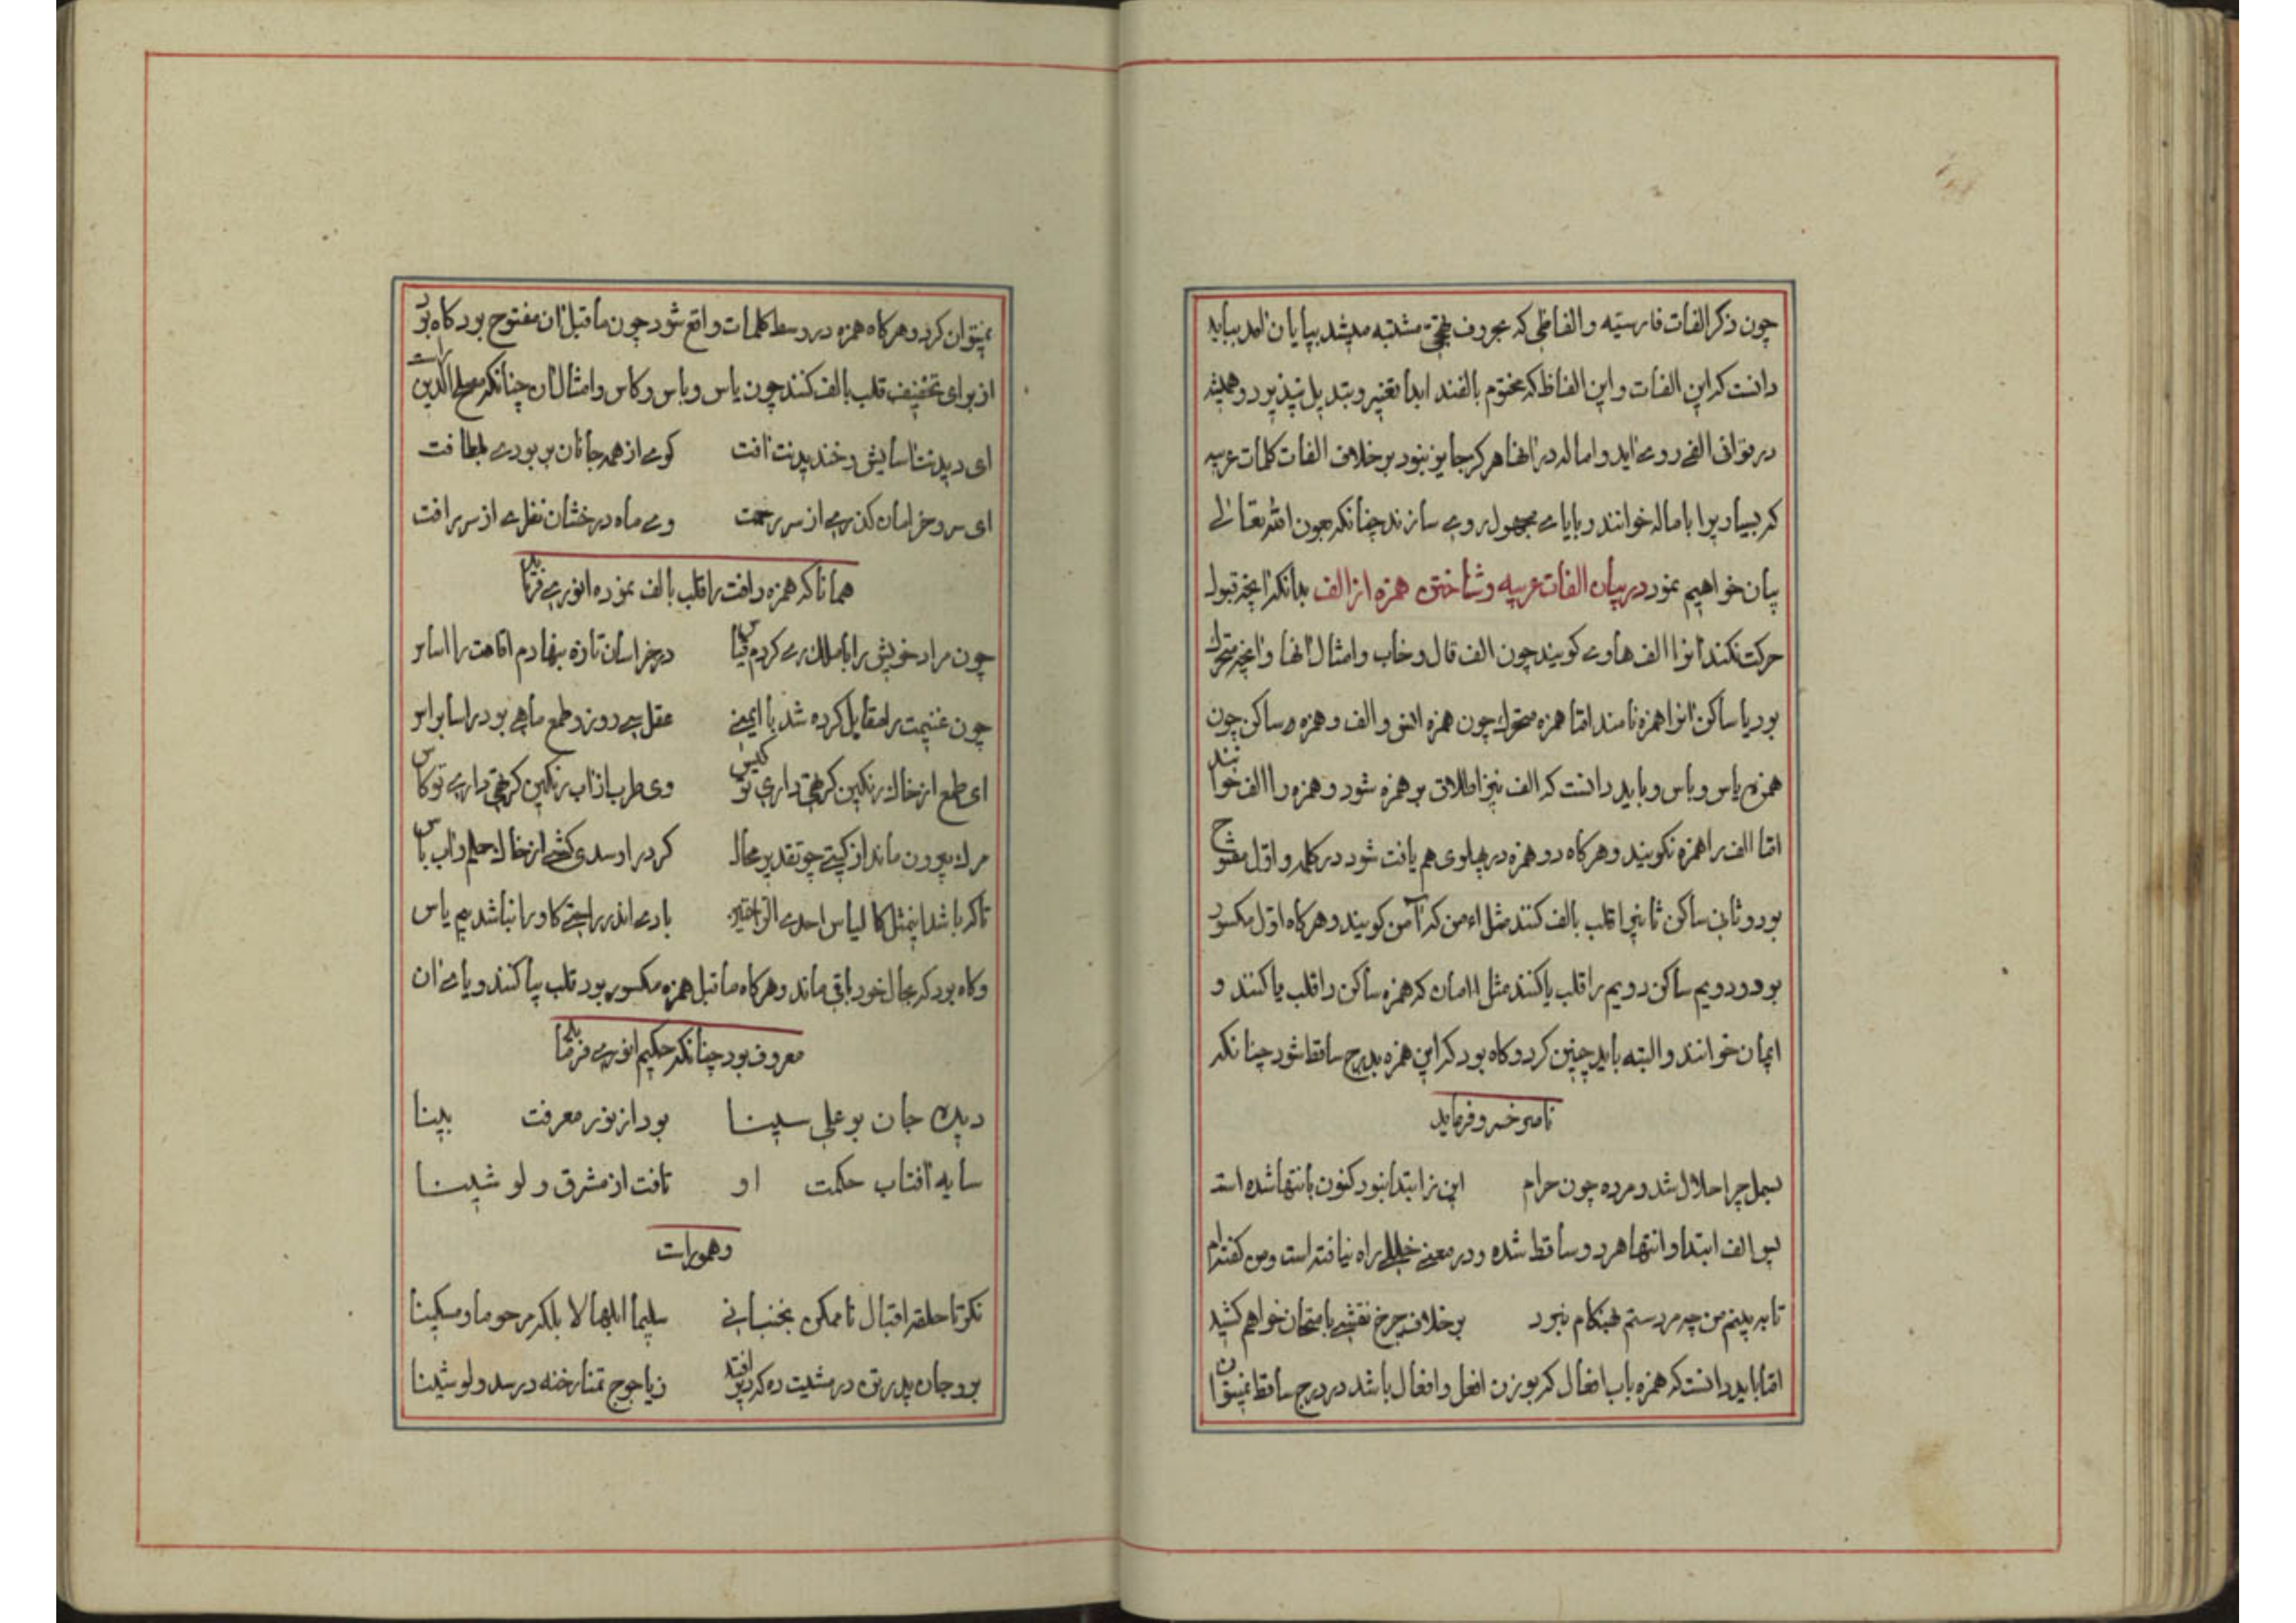 چون ذکر الفات فارسیّه و الفاظی که بحروف تهجّی مشتبه میشد بپایان امد بباید
دانست که این الفات و این الفاظ که مختوم بالفند ابدا تغییر و تبدیل نپذیرد و همیشه
در قوافی الفی روی اید و اماله در انها هرکز جایز نبود بر خلاف الفات کلمات عربیه
که بسیاریرا باماله خوانند و بایای مجهول روی سازند چنانکه بعون الله تعالی
بیان خواهیم نمود در بیان الفات عربیه و شناختن همزه از الف بدانکه انچه قبول
حرکت نکند انرا الف هاوی کویند چون الف قال و خاب و امثال انها و انچه متحرک
بود یا ساکن انرا همزه نامند امّا همزه متحرک چون همزه انس و الف و همزه ساکن چون
همزه یاس و باس و باید دانست که الف نیز اطلاق بر همزه شود و همزه را الف خوانند
امّا الف را همزه نکویند و هرکاه دو همزه در پهلوی هم یافت شود در کلمه و اوّل مفتوح
بود و ثانی ساکن ثانیرا قلب بالف کنند مثل اءمن که آمن کویند و هرکاه اوّل مکسور
بود و دویم ساکن دویم را قلب بیا کنند مثل اامان که همزه ساکن را قلب بیا کنند و
ایمان خوانند و البته باید چنین کرد و کاه بود که این همزه بدرج ساقط شود چنانکه
ناصر خسرو فرماید
بسمل چرا حلال شد و مرده چون حرام این نز ابتدا نبود کنون بانتها شده است
پس الف ابتدا و انتها هر دو ساقط شده و در معنی خللی راه نیافته است و من کفته‌ام
تا به بینم من چه مرد ستم هنکام نبرد بر خلاف چرخ نقشی بامتحان خواهم کشید
امّا باید دانست که همزه باب افعال که بر وزن افعل و افعال باشد در درج ساقط نمیتوان
نمیتوان کرد و هرکاه همزه در وسط کلمات واقع شود چون ماقبل ان مفتوح بود کاه بود
از برای تخفیف قلب بالف کنند چون یاس و باس و کاس و امثال ان چنانکه مصلح الدین راست
ای دیدنت اسایش و خندیدنت افت کوی از همه جانان بربودی بلطافت
ای سرو خرامان کذری از سر رحمت وی ماه درخشان نظری از سر رافت
همانا که همزه رافت را قلب بالف نموده انوری فرماید
چون مراد خویش را با ملک ری کردم قیاس در خراسان تازه بنهادم اقامت را اساس
چون غنیمت را مقابل کرده شد با ایمنی عقل سی روز و طمع ماهی بود راسا براس
ای طمع از خاک رنکین کر تهی داری تو کیس وی طرب از اب رنکین کر تهی داری تو کاس
مرک بیرون ماند از کیتی چو تقدیر محال کر در او سدی کشی از خاک حلم و اب باس
تا که باشد اینمثل کالیاس احدی الراحتین بادی اندر راحتی کاورا نباشد بیم یاس
و کاه بود که بحال خود باقی ماند و هرکاه ماقبل همزه مکسور بود قلب بیا کنند و یای ان
معروف بود چنانکه حکیم انوری فرماید
دیده جان بوعلی سینا بود از نور معرفت بینا
سایه افتاب حکمت او تافت از مشرق و لو شینا
و هموراست
نکو تا حلقه اقبال ناممکن نجنبانی سلیما ابلها لا بلکه مرحوما و مسکینا
برو جان پدر تن در مشیت ده که دیر افتد ز یاجوج تمنا رخنه در سد و لو شینا